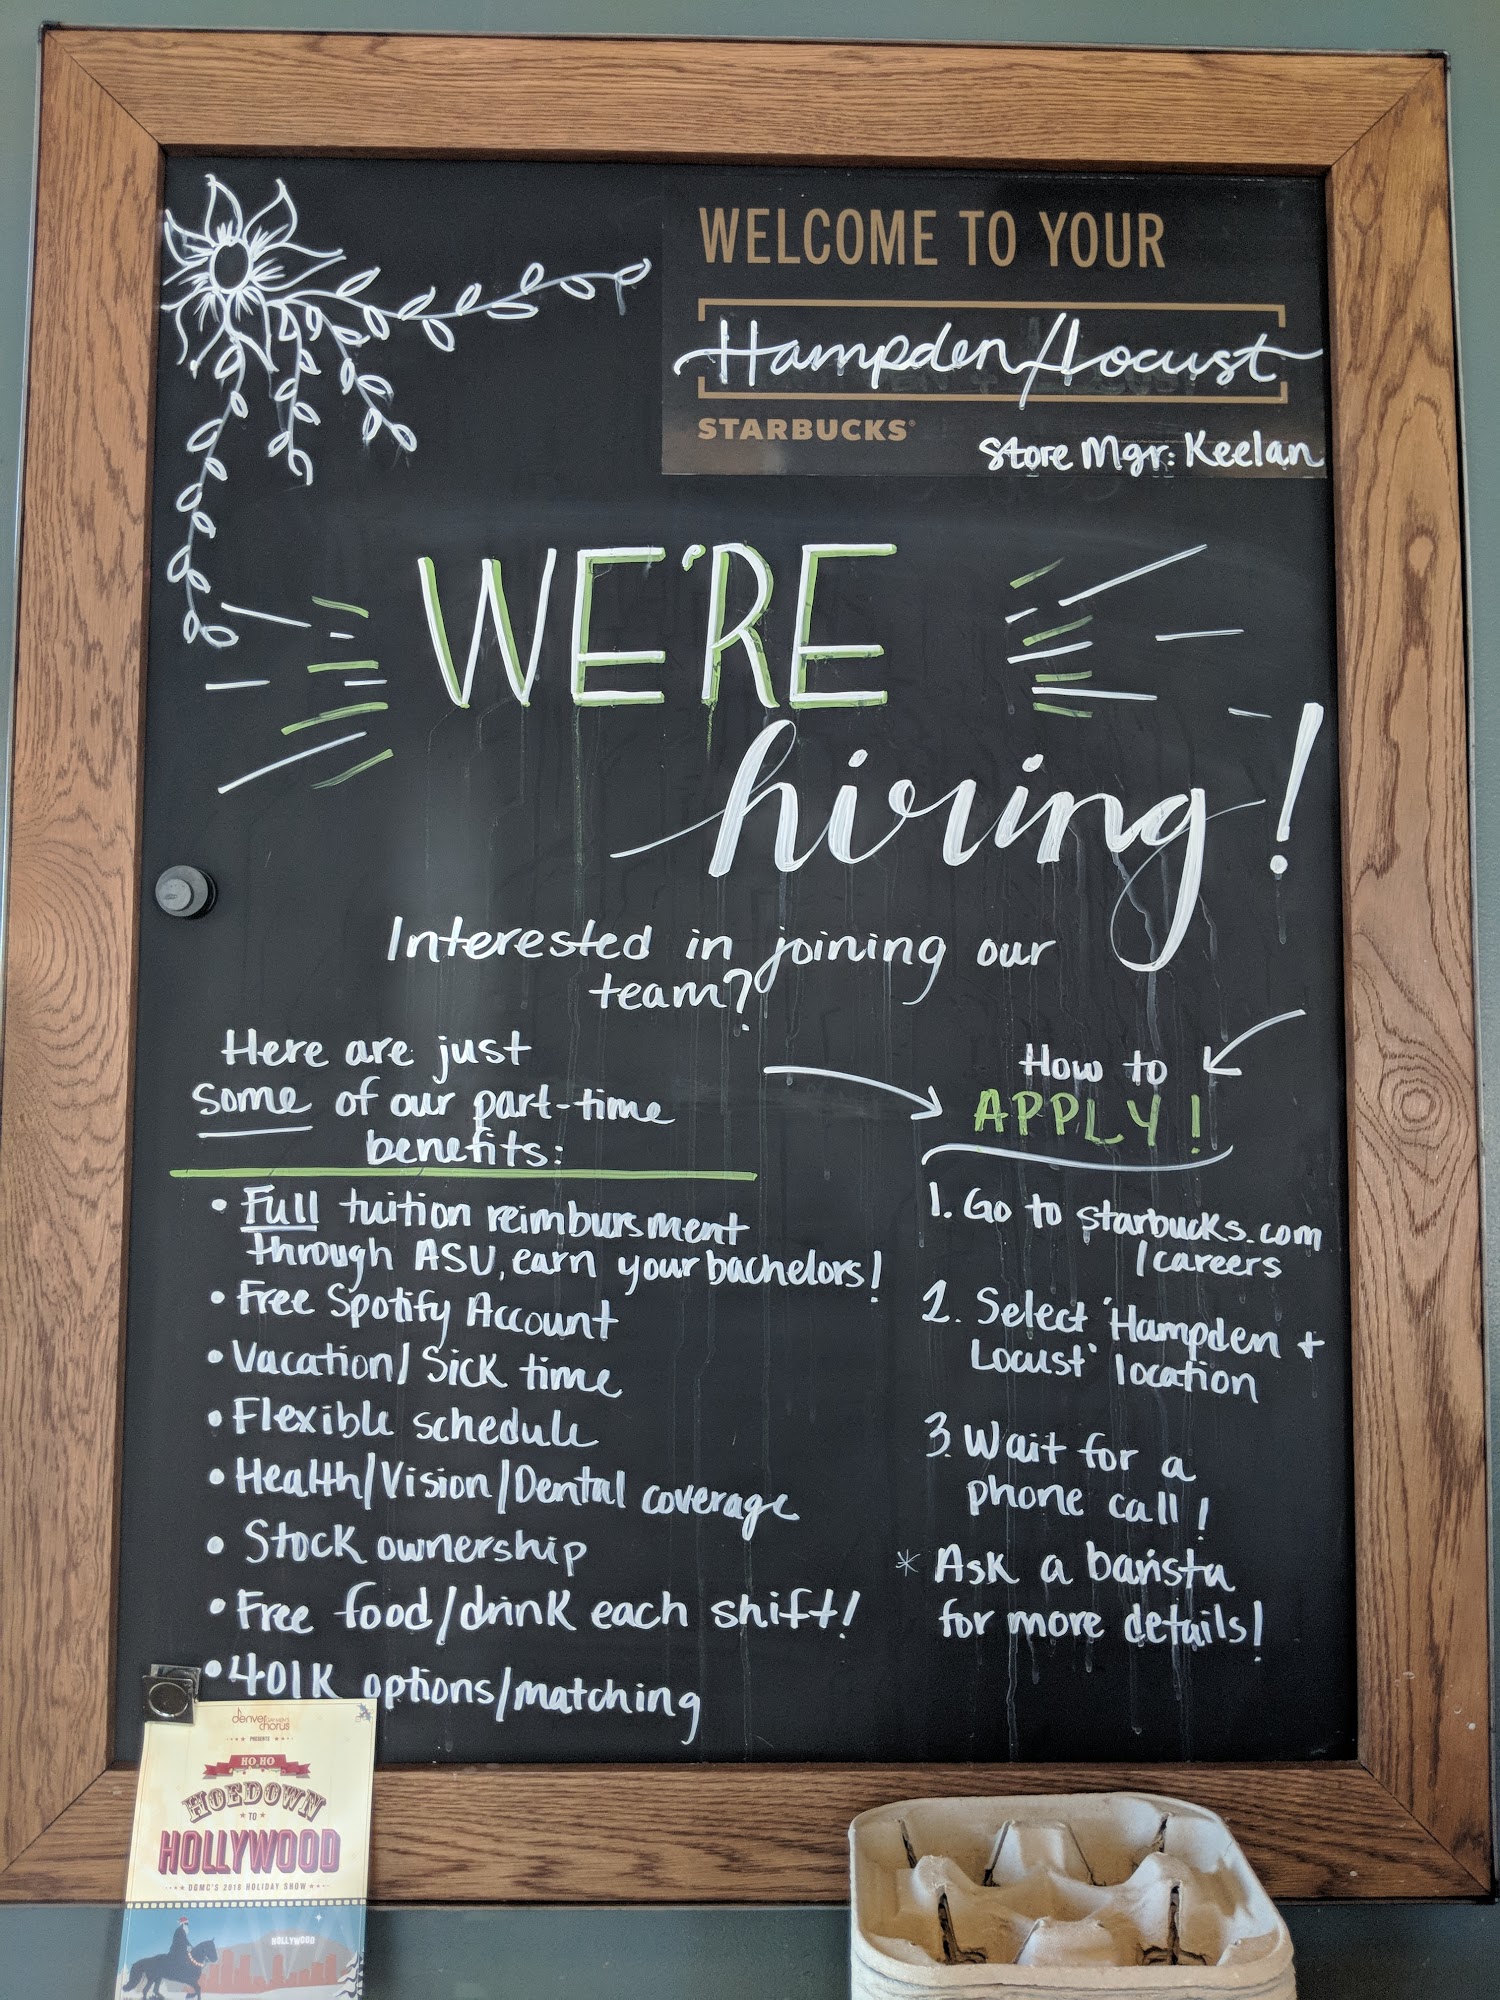 WELCOME TO YOUR
Hampden/Locust
STARBUCKS®
Store Mgr: Keelan
WE'RE
hiring!
Interested in joining our
team?
Here are just
some of our part-time
benefits:
• Full tuition reimbursment
through ASU, earn your bachelors!
• Free Spotify Account
• Vacation/Sick time
• Flexible schedule
• Health/Vision/Dental coverage
• Stock ownership
• Free food/drink each shift!
• 401K options/matching
How to
APPLY!
1. Go to starbucks.com
/careers
2. Select 'Hampden +
Locust' location
3. Wait for a
phone call!
* Ask a barista
for more details!
denver
chorus
PRESENTS
HO HO
HOEDOWN
TO
HOLLYWOOD
DGMC'S 2018 HOLIDAY SHOW
HOLLYWOOD